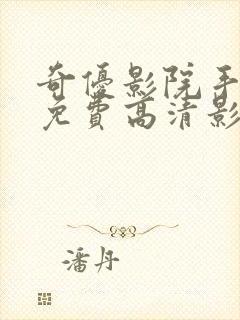 奇優影院手
免費高清影
潘丹